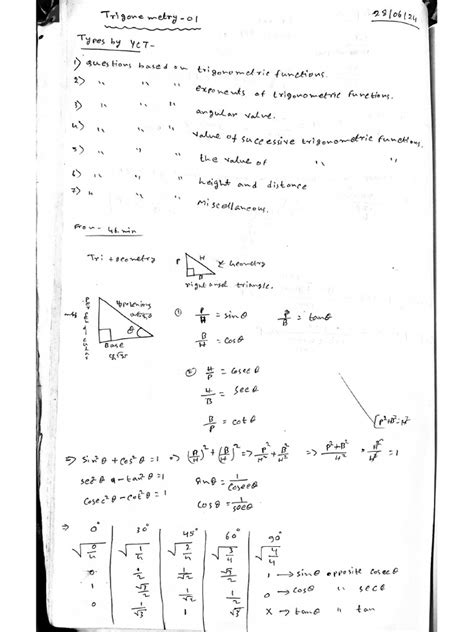 Trigonometry-01
28/06/24
Types by YCT-
1) questions based on trigonometric functions.
2) " " " exponents of trigonometric functions.
3) " " " angular value.
4) " " " value of successive trigonometric functions.
5) " " " the value of " "
6) " " " height and distance
7) " " " Miscellaneous.
From - 46 min
Tri + geometry
P H B
right angle triangle.
Perpendicular
θ
Base
① P/H = sinθ P/B = tanθ
B/H = cosθ
② H/P = cosec θ
H/B = sec θ
B/P = cot θ
P²+B²=H²
⇒ sin²θ + cos²θ = 1 ⇒ (P/H)² + (B/H)² ⇒ P²/H² + B²/H² ⇒ P²+B²/H² H²/H² = 1
sec²θ - tan²θ = 1
sinθ = 1/cosecθ
cosec²θ - cot²θ = 1
cosθ = 1/secθ
⇒ 0° 30° 45° 60° 90°
√0/4 √1/4 √2/4 √3/4 √4/4
0 1/2 1/√2 √3/2 1 → sinθ opposite cosecθ
1 √3/2 1/√2 1/2 0 → cosθ " secθ
0 1/√3 1 √3 x → tanθ "